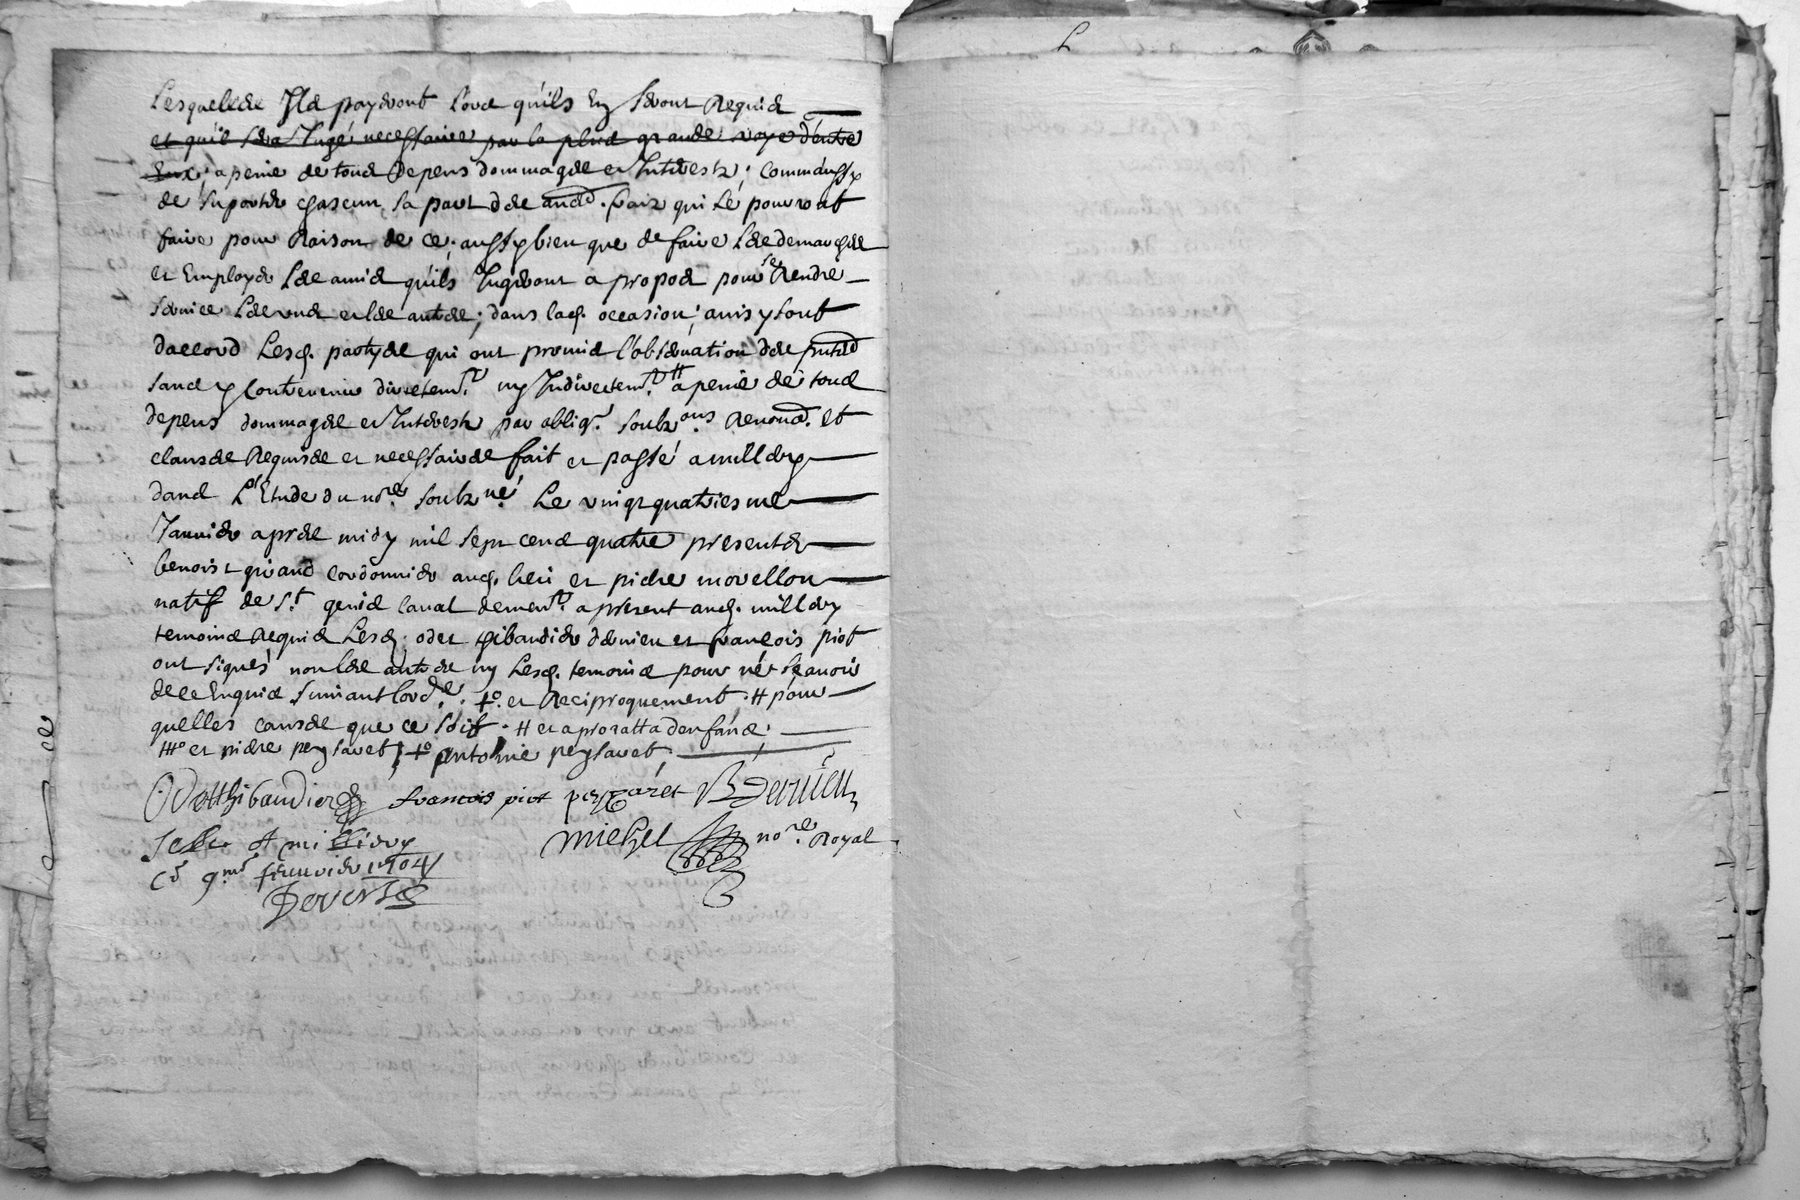 Lesquelles Ils payeront Lors qu'ils En seront Requis
et qu'il sera Jugé necessaire par la plus grande voye d'entre
Eux, a peine de tous Depens dommages et Interests; comm'aussy
de suporter chascun sa part des aud. fraix qui se pourront
faire pour Raison de ce, aussy bien que de faire Les demarches
et Employer Les amis qu'ils Jugeront a propos pour se Rendre
service Les uns et les autres; dans lad. occasion; ainsy sont
daccord Lesd. partyes qui ont promis l'observation des pntes
sans y contrevenir directemt. ny Indirectemt. # a peine de tous
depens dommages et Interests par obligr. soubz ons Renond. et
clauses Requises et necessaires fait et passé a millery
dans L'Etude du nore. soubz né. Le vingt quatriesme
Januier apres midy mil sept cens quatre presents
benoist giraud cordonnier aud. lieu et pierre morellon
natif de St. genis laual demeurt. a present aud. millery
temoins Requis Lesd. odet thibaudier dernieu et françois piot
ont signés non les autres ny Lesd. temoins pour ne scauoir
de ce Enquis suiuant lorde. +o. et Reciproquement # pour
quelles causes que ce soit. # et a proratta denfans.
###o et pierre peysaret, +o antoine peysaret,
Odetthibaudier francois piot peysaret B Dernieu
Scellé A millery michel nore. Royal
Ce 9me feurvier 1704
Deverse